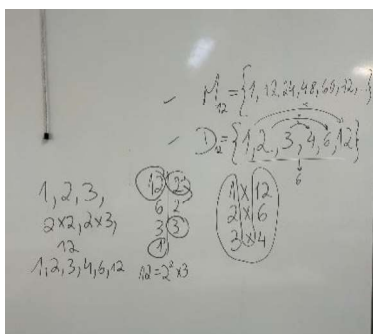 M₁₂ = {1, 12, 24, 48, 60, 72, ...}
D₁₂ = {1, 2, 3, 4, 6, 12}
6
1, 2, 3,
2x2, 2x3,
12
1, 2, 3, 4, 6, 12
12 2
6 2
3 3
1
12 = 2² x 3
1 x 12
2 x 6
3 x 4